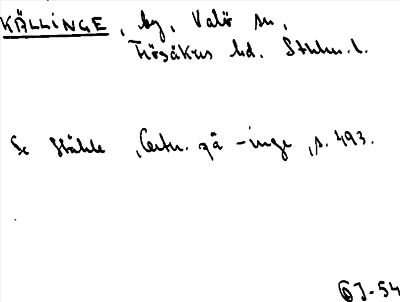 KÄLLINGE, by, Valö sn,
Frösåkers hd. Sthlm. l.
Se Ståhle, Ortn. på -inge, s. 493.
GJ-54